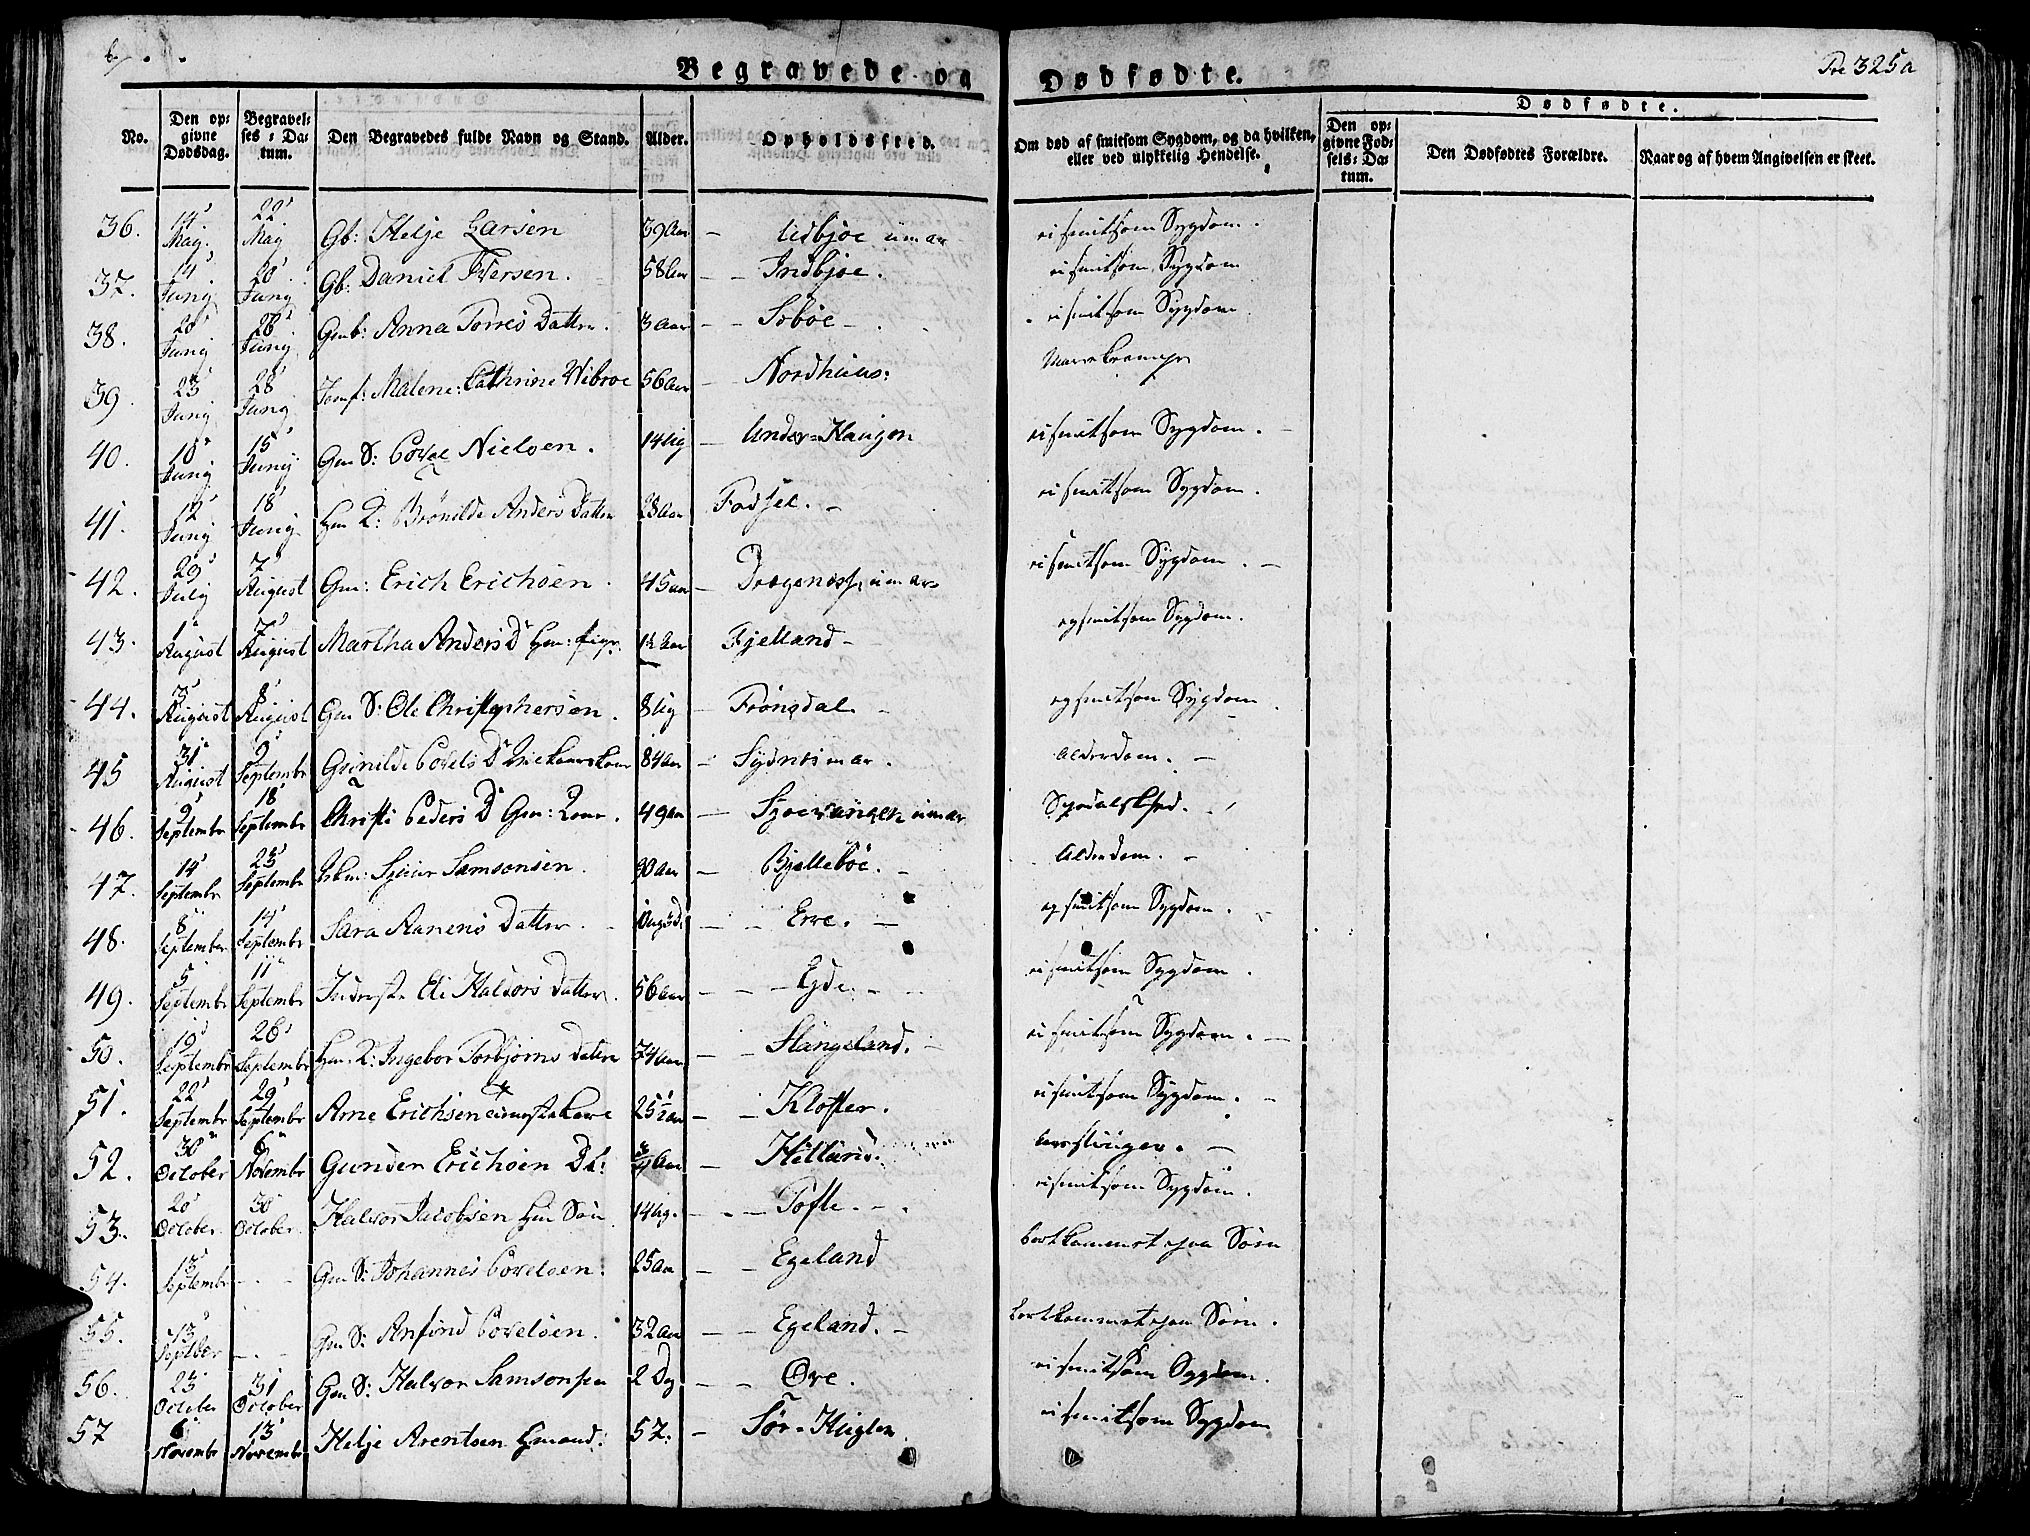 Begravede og Dødfødte.
Fre 325a
No. Den opgivne Dødsdag. Begravelses-Datum. Den Begravedes fulde Navn og Stand. Alder. Opholdssted. Om død af smitsom Sygdom, og da hvilken, eller ved ulykkelig Hendelse. Dødfødte. Den opgivne Fødsels-Datum. Den Dødfødtes Forældre. Naar og af hvem Angivelsen er skeet.
36. 14 Maij. 22 Maij Gb: Helje Larsen 39 Aar – Uidbjoe ei smitsom Sygdom.
37. 14 Junij 20 Junij Gb: Daniel Iversen. 58 Aar – – Indbjoe. ei smitsom Sygdom
38. 20 Junij 26 Junij Gmb: Anna Torres Datter. 3 Aar – – Søbøe – ei smitsom Sygdom
39. 23 Junij 28 Junij Jomf: Malene: Cathrine Wibroe 56 Aar – Nordhuus:
40. 10 Junij 15 Junij Gm S: Povel Nielsen. 14 Ug – Under-Haugen ei smitsom Sygdom. –
41. 12 Junij 18 Junij Hm K: Brønilde Anders Datter 28 Aar Fodjel. – ei smitsom Sygdom.
42. 29 July 7 August Gm: Erich Erichsen. 45 Aar – ei smitsom Sygdom. –
43. 1 August 7 August Martha Anders D Hm: 1½ Aar Fjelland – ej smitsom Sygdom.
44. 3 August 8 August Gm S: Ole Christophersen. 8 Ug – Frønsdal – ej smitsom Sygdom
45 31 August 9 Septembr Gunilde Povels D 84 Aar – Alderdom. –
46. 9 Septembr 18 Septembr Christi Peders D Gm: Kone. 49 Aar –
47. 14 Septembr 23 Septembr Sjuur Samsonsen. 90 Aar – Bjellebøe. – Alderdom. –
48. 8 September 14 Septembr Sara Aanens Datter. – – Erve. – ej smitsom Sygdom.
49. 5 Septembr 11 Septembr Inderste Eli Halvors Datter. 56 Aar – – – Egde. – ei smitsom Sygdom.
50. 19 Septembr 26 Septembr Hm: K: Ingebor Torbjørns Datter 74 Aar – – Stangeland. – ei smitsom Sygdom. –
51. 22 Septembr 29 Septembr Arne Erichsen 25½ Aar – – Kloster. ei smitsom Sygdom. –
52. 30 October 6 Novembr Gunder Erichsen Dr: ¾ Aar – Helland. –
53. 20 October 30 October Halvor Jacobsen Hm Søn 14 Ug. – – Tofte. – ei smitsom Sygdom.
54. 13 Septembr – Gm S: Johannes Povelsen. 25 Aar – – Egeland bortkommet paa Søen
55. 13 Septber – Gm S: Anfind Povelsen. 32 Aar – – Egeland. – bortkommet paa Søen.
56. 23 October 31 October Gm S: Halvor Samsonsen 2 Dg – – Øve. ei smitsom Sygdom.
57 6 Novembr 13 Novembr Helje Arentsen Hmand: 57. – Sør-Huglen ei smitsom Sygdom